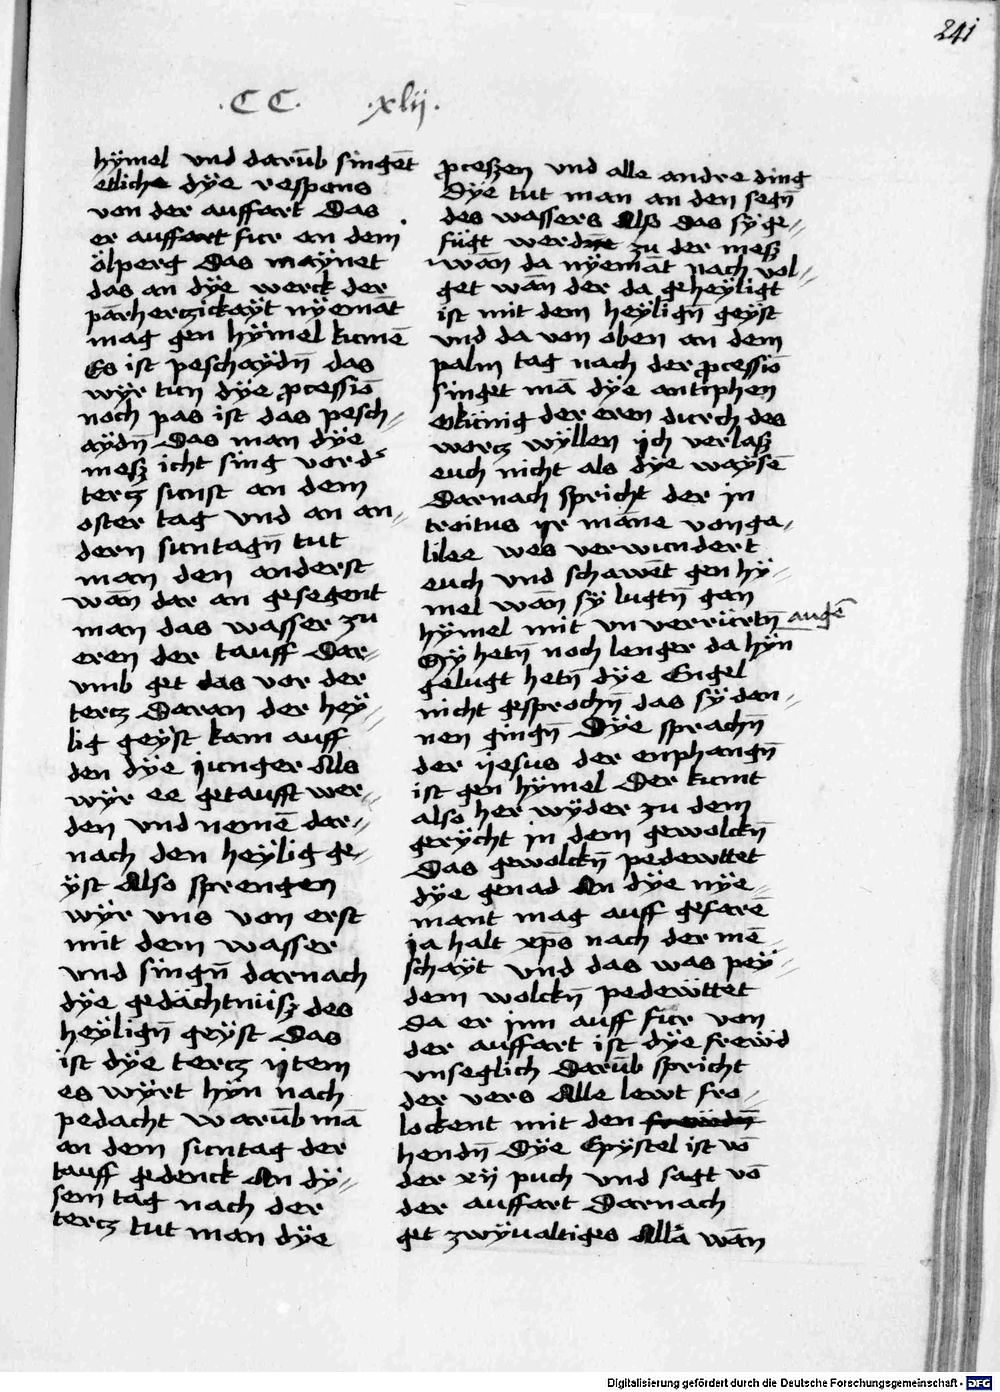 241
.CC. .xlij.
hÿmel vnd darūb singēt
etliche dÿe respons
von der auffart Das
er auffart fur an dem
ölperg das maÿnet
das an dÿe werck der
parherczickaÿt nÿemāt
mag gen hÿmel kumē
Es ist peschaÿdn̄ das
wÿr tun dÿe pcessiō
noch pas ist das pesch-
aÿdn̄ Das man dÿe
mesz icht sing vor d'
tercz sunst an dem
oster tag vnd an an-
dern suntagn̄ tut
man den anderst
wān dar an gesegent
man das wasser zu
eren der tauff Dar-
vmb get das vor der
tercz Daran der heÿ-
lig geÿst kam auff
den dÿe junger Als
wÿr ee getaufft wer-
den vnd nemē dar-
nach den heÿlig ge-
ÿst Also sprengen
wÿr vns von erst
mit dem wasser
vnd singn̄ darnach
dÿe gedächtnüsz des
heÿlign̄ geÿst Das
ist dÿe tercz ijtem
es wÿrt hÿn nach
pedacht warūb mā
an dem suntag der
tauff gedenck An dÿ-
sem tag nach der
tercz tut man dÿe
pceszen vnd alle andre ding
Dÿe tut man an den segn̄
des wassers Also das sÿ ge-
fügt werdn̄ zu der mesz
wān da nÿemāt nach vol-
get wān der da geheÿligt
ist mit dem heÿlign̄ geÿst
vnd da von oben an dem
palm tag nach der pcessiō
singet mā dÿe antiphen
O künig der eren durch des
wercz wÿllen ich verlasz
euch nicht als dÿe waÿsē
Darnach spricht der in
troitus ir māne von ga-
lilee wes verwundert
euch vnd schawēt gen hÿ-
mel wān sÿ lugtn̄ gan
hÿmel mit vn verrürtn̄ augē
Sÿ hetn̄ noch lenger da hÿn
gelugt hetn̄ dÿe Engel
nicht gesprochn̄ das sÿ dan-
nen gingn̄ Dÿe sprachn̄
der ijesus der enphangn̄
ist gen hÿmel Der kumt
also her wÿder zu dem
gerÿcht in dem gewolckn̄
Das gewolckn̄ pedewttet
dÿe genad An dÿe nÿe-
mant mag auff gefarē
ia halt xp̄s nach der mē-
schaÿt vnd das was peÿ-
dem wolckn̄ pedewttet
da er inn auff fur von
der auffart ist dÿe frewd
vnseglich Darūb spricht
der vers Alle lewt fro-
lockent mit den frewdn̄
hendn̄ Dÿe Epÿstel ist vō
der xij puch vnd sagt vō
der auffart Darnach
get zwÿualtiges Allā wān
Digitalisierung gefördert durch die Deutsche Forschungsgemeinschaft - DFG